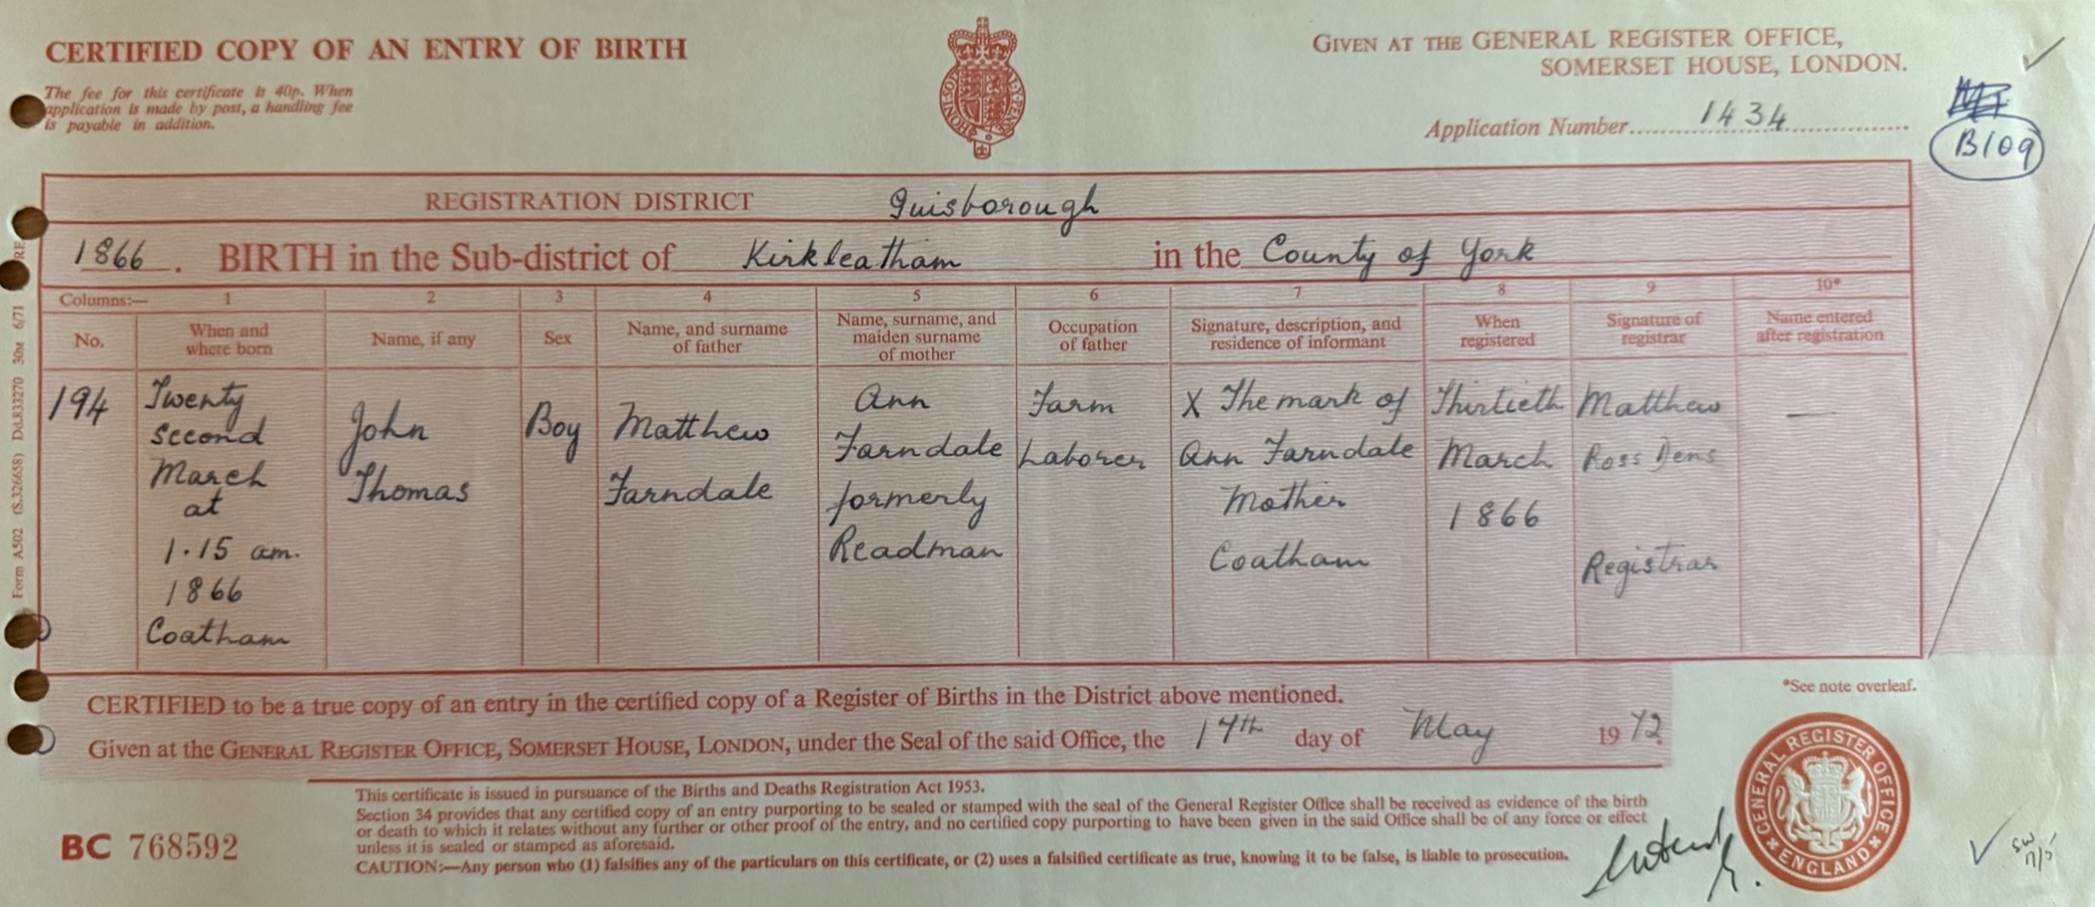 CERTIFIED COPY OF AN ENTRY OF BIRTH
The fee for this certificate is 40p. When
application is made by post, a handling fee
is payable in addition.
GIVEN AT THE GENERAL REGISTER OFFICE,
SOMERSET HOUSE, LONDON.
Application Number 1434
B109
REGISTRATION DISTRICT Guisborough
1866. BIRTH in the Sub-district of Kirkleatham in the County of York
Columns:— 1 2 3 4 5 6 7 8 9 10*
No.
When and
where born
Name, if any
Sex
Name, and surname
of father
Name, surname, and
maiden surname
of mother
Occupation
of father
Signature, description, and
residence of informant
When
registered
Signature of
registrar
Name entered
after registration
194
Twenty
second
March
at
1.15 am.
1866
Coatham
John
Thomas
Boy
Matthew
Farndale
Ann
Farndale
formerly
Readman
Farm
Laborer
X The mark of
Ann Farndale
Mother
Coatham
Thirtieth
March
1866
Matthew
Ross Dens
Registrar
—
CERTIFIED to be a true copy of an entry in the certified copy of a Register of Births in the District above mentioned.
Given at the GENERAL REGISTER OFFICE, SOMERSET HOUSE, LONDON, under the Seal of the said Office, the 17th day of May 1972
*See note overleaf.
This certificate is issued in pursuance of the Births and Deaths Registration Act 1953.
Section 34 provides that any certified copy of an entry purporting to be sealed or stamped with the seal of the General Register Office shall be received as evidence of the birth
or death to which it relates without any further or other proof of the entry, and no certified copy purporting to have been given in the said Office shall be of any force or effect
unless it is sealed or stamped as aforesaid.
CAUTION:—Any person who (1) falsifies any of the particulars on this certificate, or (2) uses a falsified certificate as true, knowing it to be false, is liable to prosecution.
BC 768592
GENERAL REGISTER OFFICE
ENGLAND
Form A502 (S.326658) Dd.833270 30M 6/71